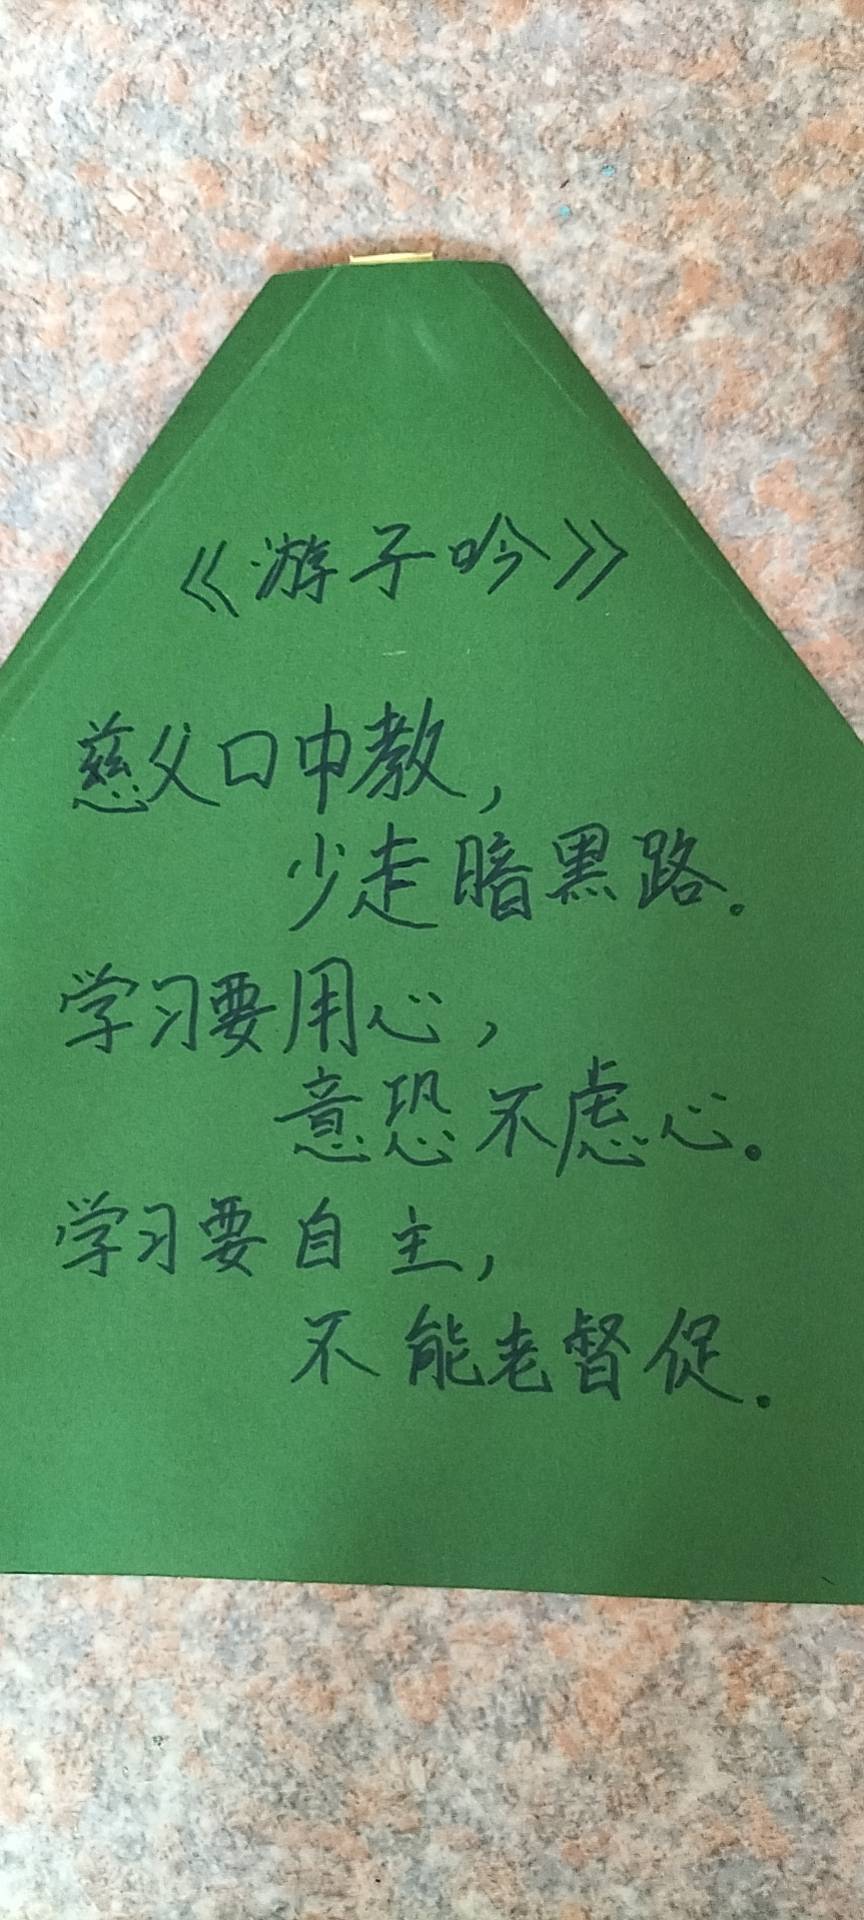 《游子吟》
慈父口中教，
少走暗黑路。
学习要用心，
意恐不虑心。
学习要自主，
不能老督促。